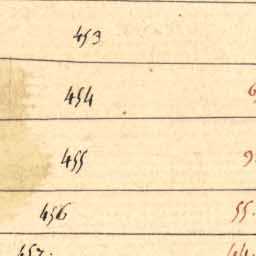 453
454 6
455 9
456 55.
457. 44.